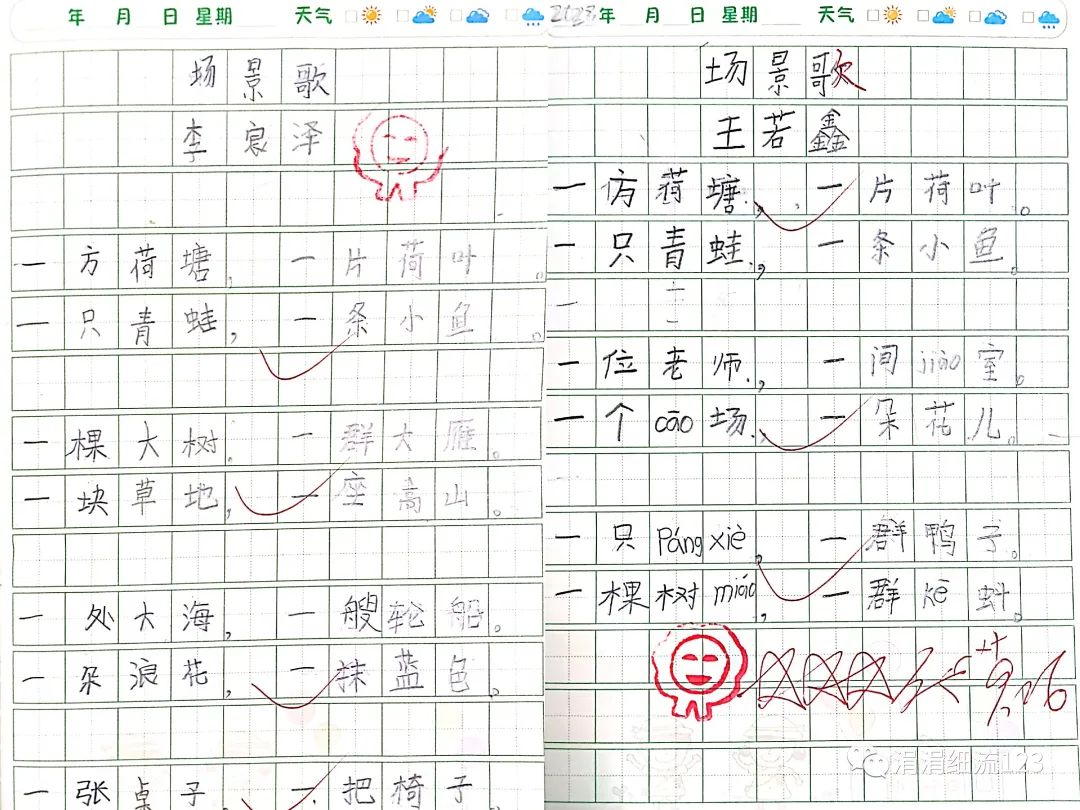 年 月 日 星期 天气
场景歌
李宸泽
一方荷塘,一片荷叶。
一只青蛙,一条小鱼。
一棵大树,一群大雁。
一块草地,一座高山。
一处大海,一艘轮船。
一朵浪花,一抹蓝色。
一张桌子 一把椅子
年 月 日 星期 天气
场景歌
王若鑫
一方荷塘,一片荷叶。
一只青蛙,一条小鱼。
一位老师,一间jiào室。
一个cāo场,一朵花儿。
一只Páng xiè,一群鸭子。
一棵树miáo,一群kē蚪。
涓涓细流123